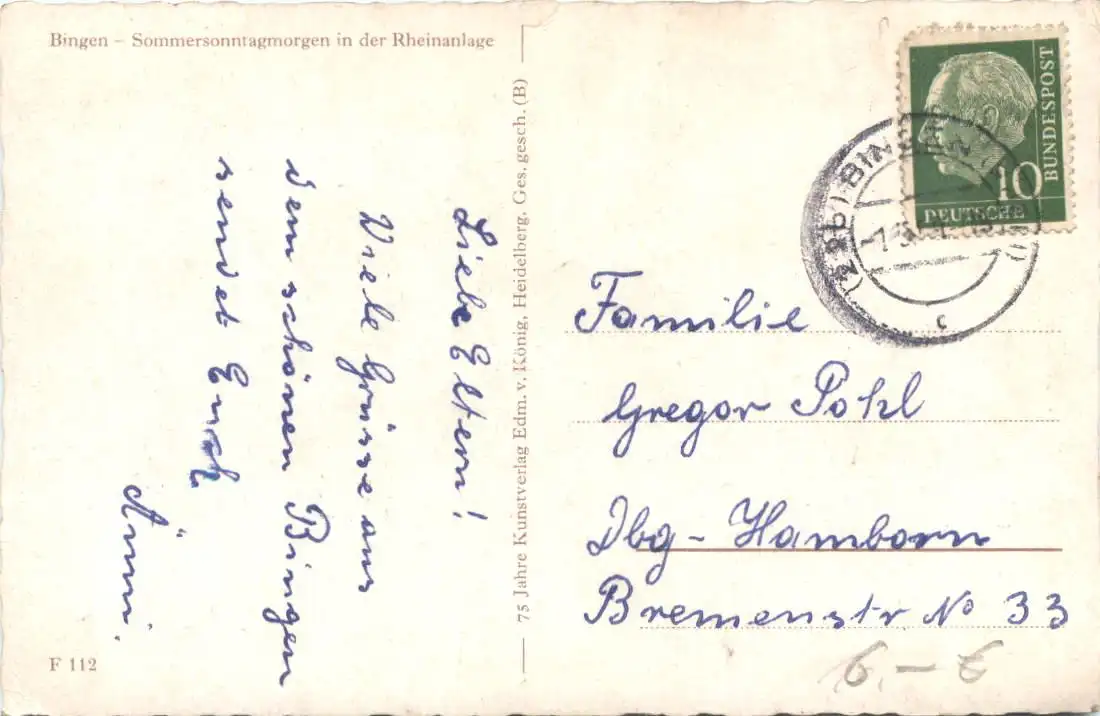 Bingen – Sommersonntagmorgen in der Rheinanlage
Liebe Eltern!
Viele Grüsse aus
dem schönen Bingen
sendet Euch
Änni.
F 112
75 Jahre Kunstverlag Edm. v. König, Heidelberg. Ges. gesch. (B)
DEUTSCHE
BUNDESPOST
10
(22b) BINGEN
c
Familie
Gregor Pohl
Dbg - Hamborn
Bremenstr No 33
6,- €